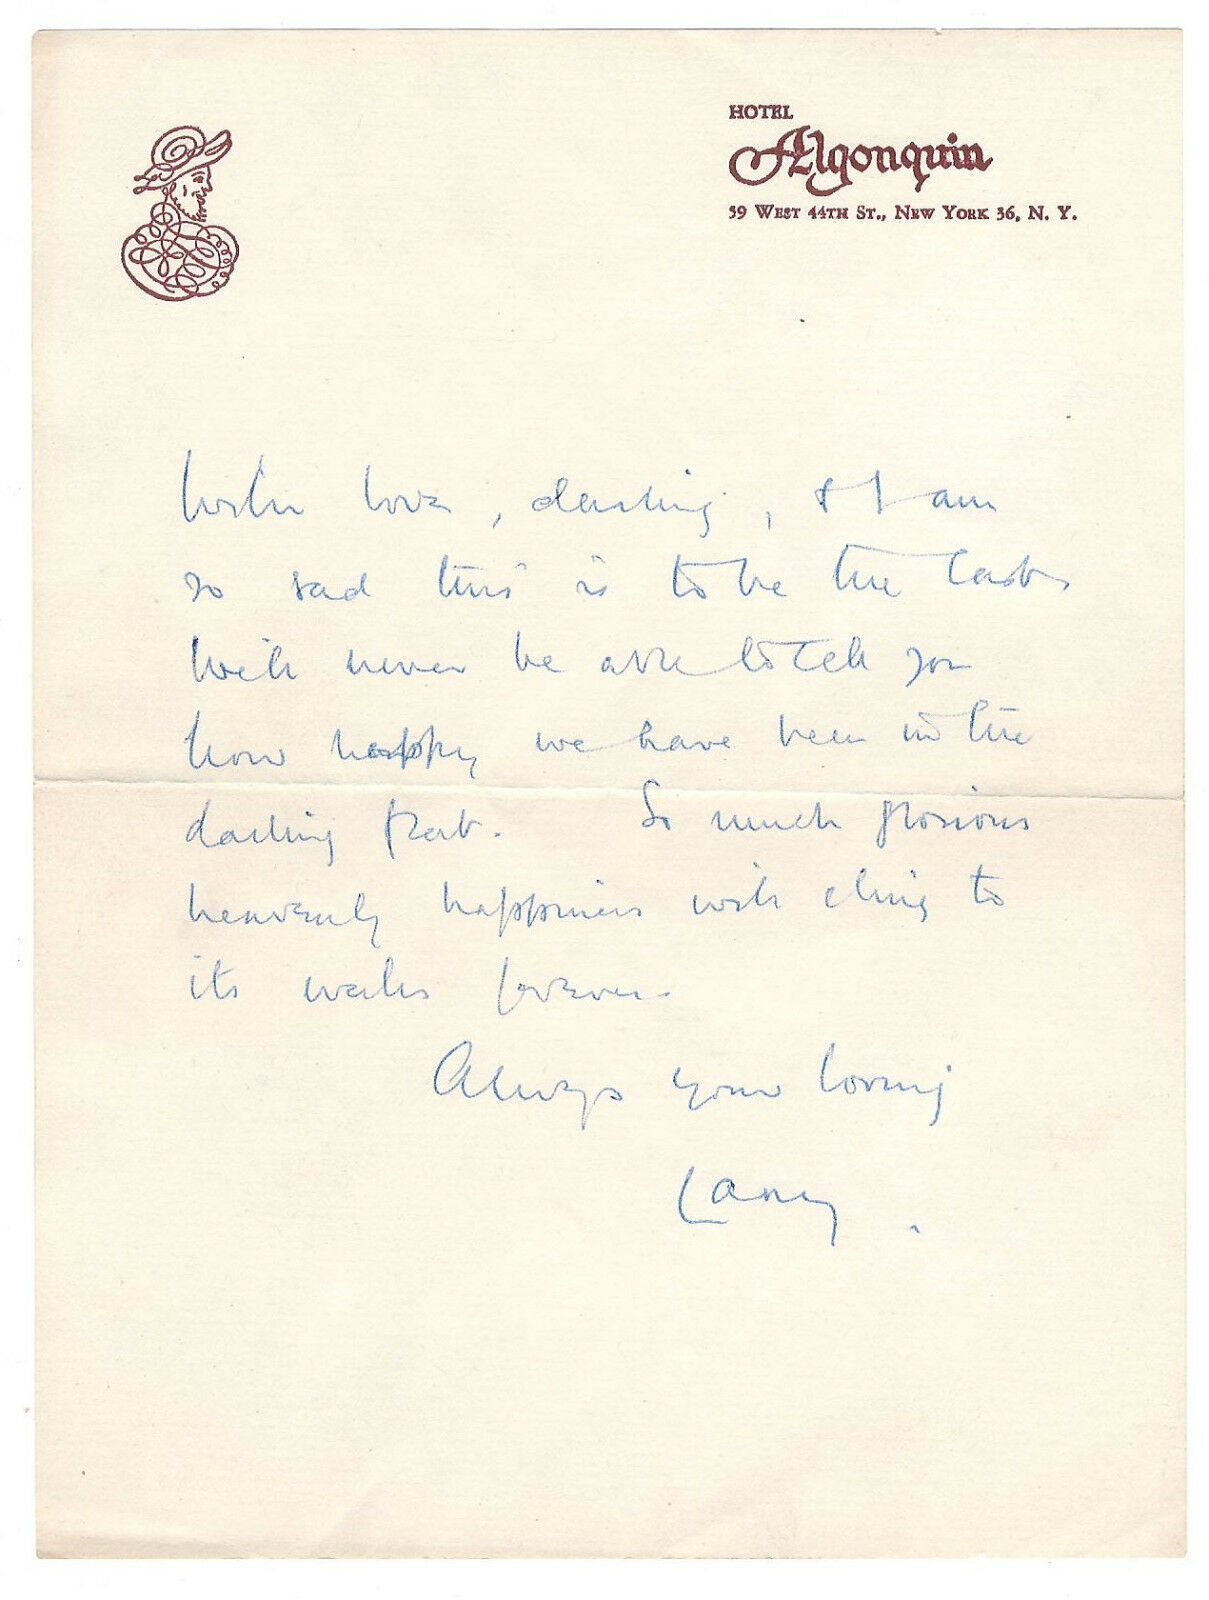 HOTEL
Algonquin
59 WEST 44TH ST., NEW YORK 36, N. Y.
With love, darling, & I am
so sad this is to be the last.
Will never be able to tell you
how happy we have been in the
darling flat. So much glorious
heavenly happiness will cling to
its walls forever.
Always your loving
Larry.